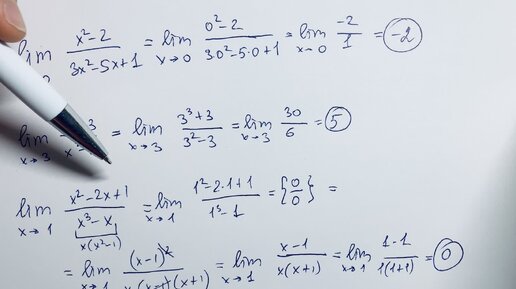 lim x²-2 / 3x²-5x+1 = lim x→0 0²-2 / 3·0²-5·0+1 = lim x→0 -2 / 1 = -2
lim x→3 = lim x→3 3³+3 / 3²-3 = lim x→3 30 / 6 = 5
lim x→1 x²-2x+1 / x³-x = lim x→1 1²-2·1+1 / 1³-1 = {0/0} =
x(x²-1)
= lim x→1 (x-1)² / x(x-1)(x+1) = lim x→1 x-1 / x(x+1) = lim x→1 1-1 / 1(1+1) = 0